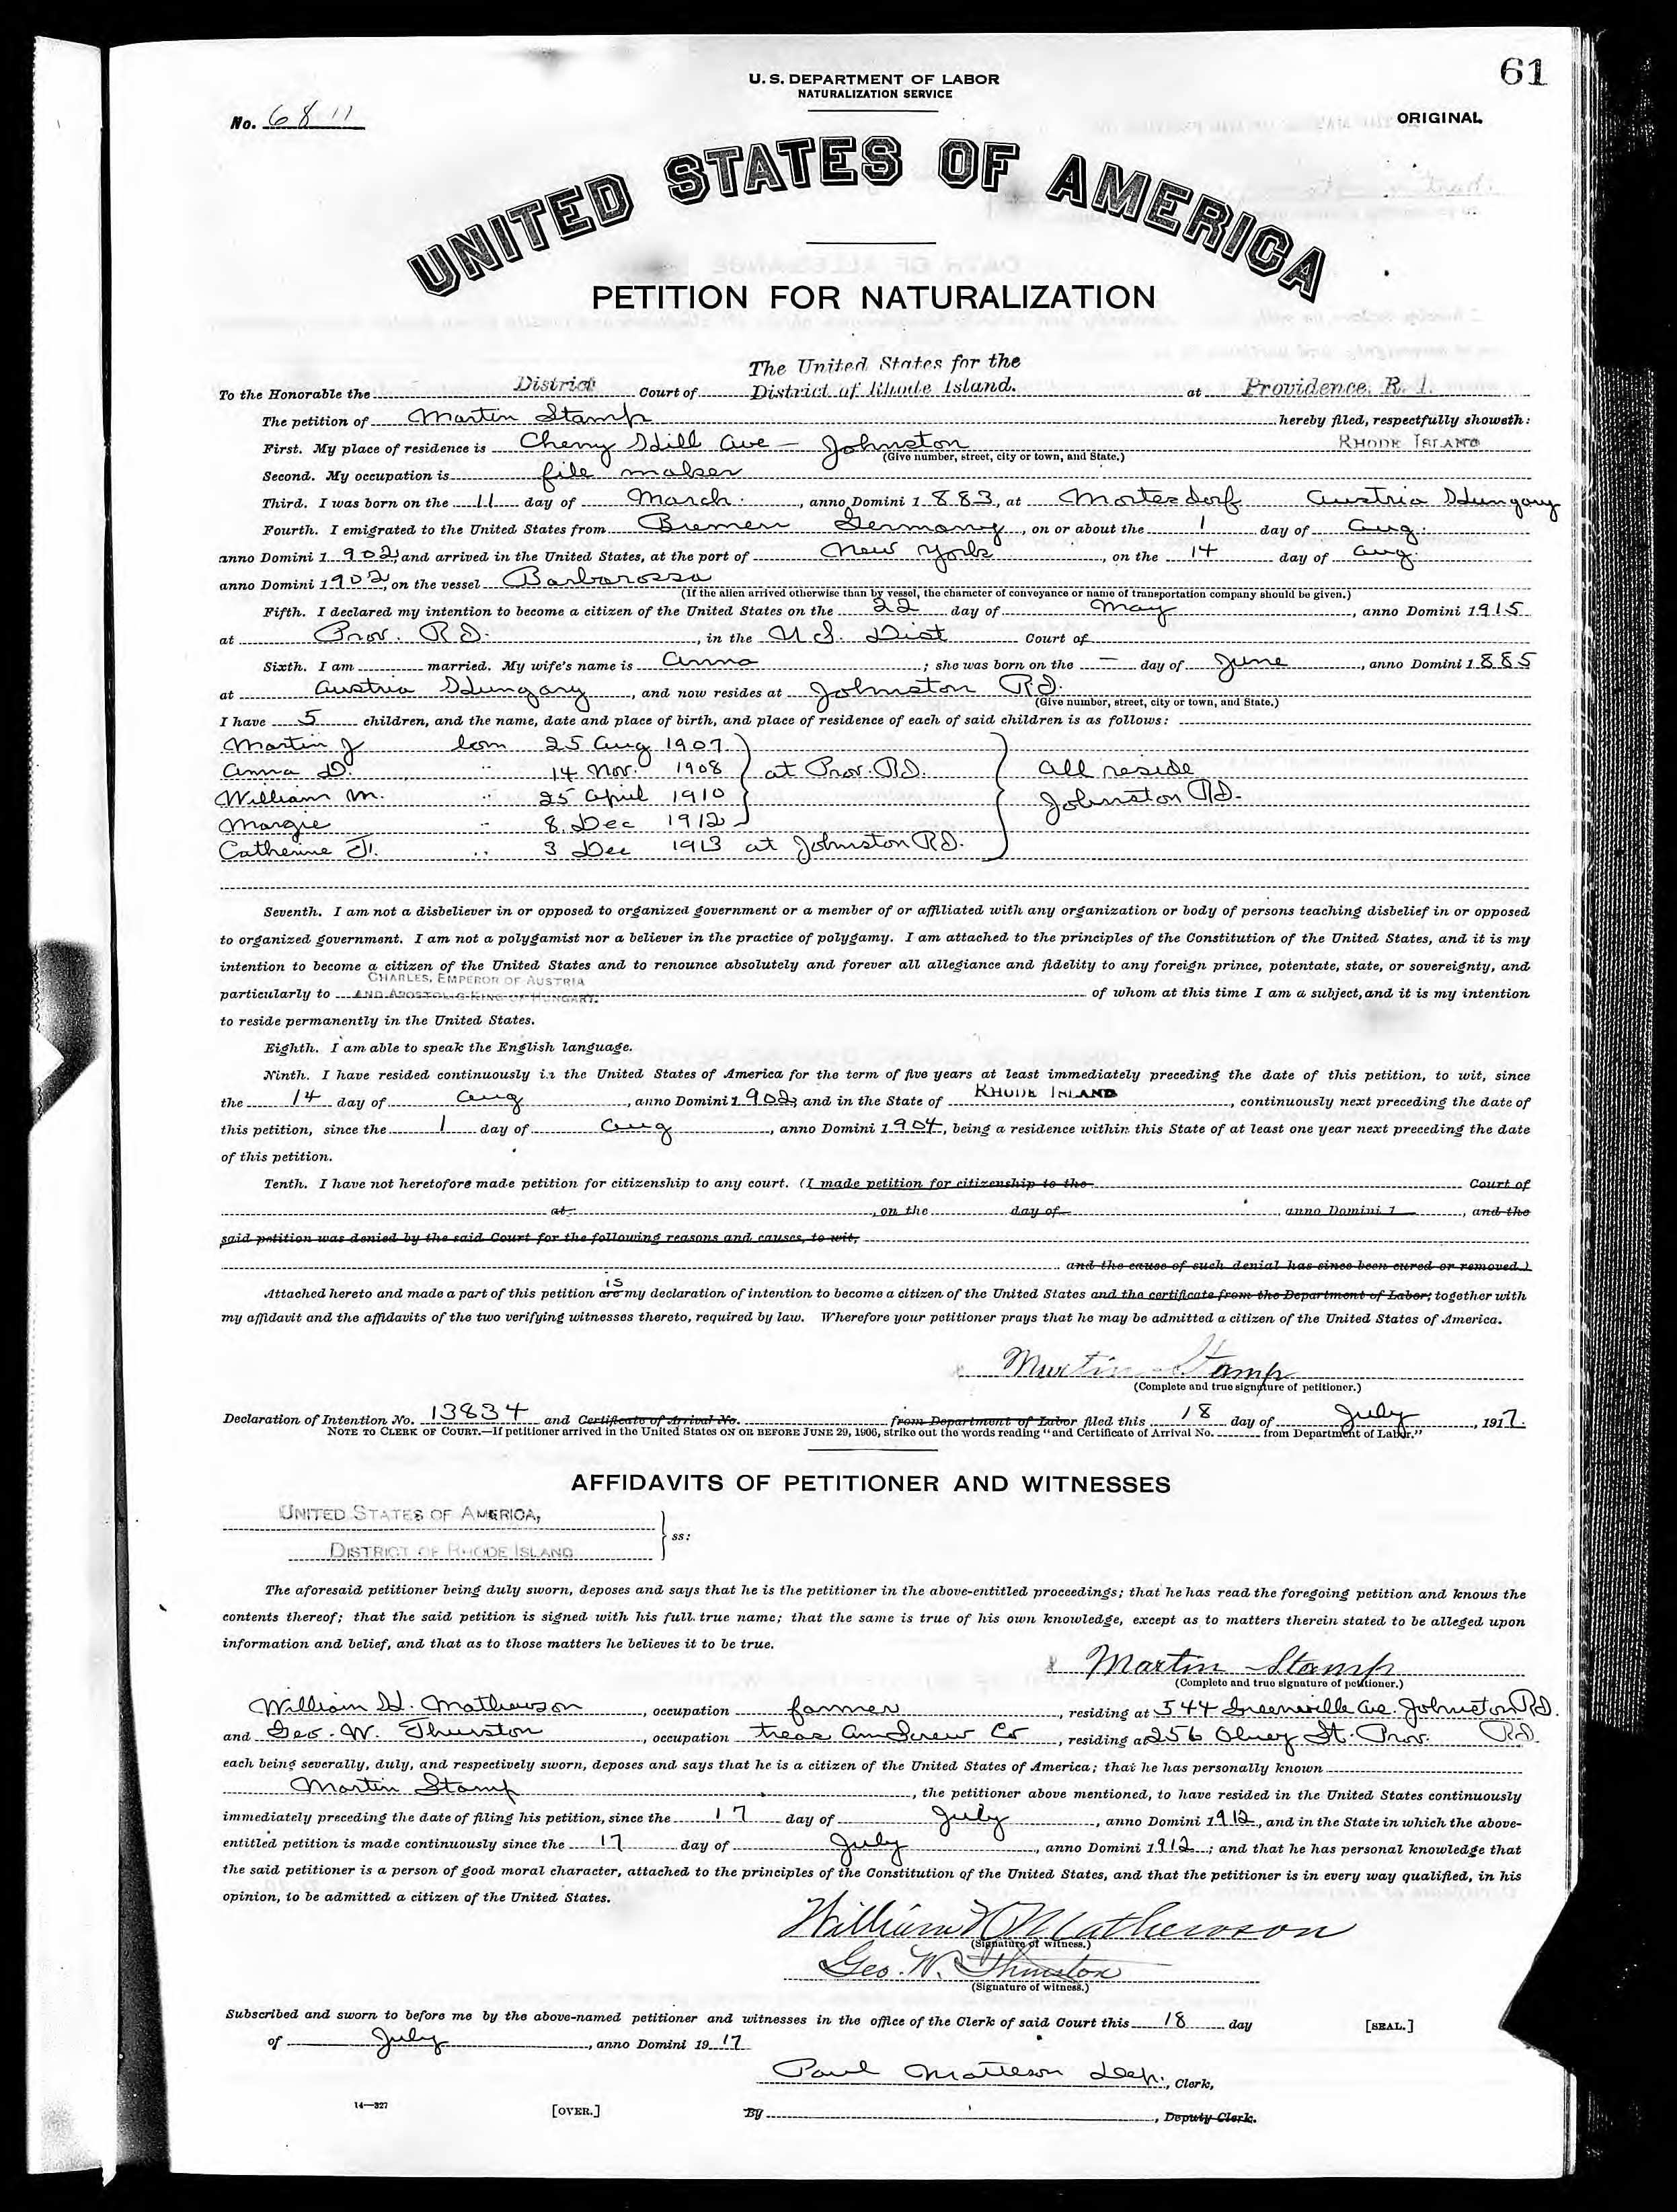 61
U. S. DEPARTMENT OF LABOR
NATURALIZATION SERVICE
No. 6811
ORIGINAL
UNITED STATES OF AMERICA
PETITION FOR NATURALIZATION
The United States for the
To the Honorable the District Court of District of Rhode Island. at Providence, R. I.
The petition of Martin Stamp hereby filed, respectfully showeth:
First. My place of residence is Cherry Hill Ave — Johnston RHODE ISLAND
(Give number, street, city or town, and State.)
Second. My occupation is file maker
Third. I was born on the 11 day of March, anno Domini 1883, at Mortesdorf Austria Hungary
Fourth. I emigrated to the United States from Bremen Germany, on or about the 1 day of Aug.
anno Domini 1902, and arrived in the United States, at the port of New York, on the 14 day of Aug.
anno Domini 1902, on the vessel Barbarossa
(If the alien arrived otherwise than by vessel, the character of conveyance or name of transportation company should be given.)
Fifth. I declared my intention to become a citizen of the United States on the 22 day of May, anno Domini 1915
at Prov. R.I., in the U.S. Dist Court of
Sixth. I am married. My wife's name is Anna; she was born on the — day of June, anno Domini 1885
at Austria Hungary, and now resides at Johnston R.I.
(Give number, street, city or town, and State.)
I have 5 children, and the name, date and place of birth, and place of residence of each of said children is as follows:
Martin J born 25 Aug 1907
Anna D. " 14 Nov. 1908 at Prov. R.I. All reside
William M. " 25 April 1910 Johnston R.I.
Margie " 8 Dec 1912
Catherine T. " 3 Dec 1913 at Johnston R.I.
Seventh. I am not a disbeliever in or opposed to organized government or a member of or affiliated with any organization or body of persons teaching disbelief in or opposed
to organized government. I am not a polygamist nor a believer in the practice of polygamy. I am attached to the principles of the Constitution of the United States, and it is my
intention to become a citizen of the United States and to renounce absolutely and forever all allegiance and fidelity to any foreign prince, potentate, state, or sovereignty, and
CHARLES, EMPEROR OF AUSTRIA
particularly to AND APOSTOLIC KING OF HUNGARY. of whom at this time I am a subject, and it is my intention
to reside permanently in the United States.
Eighth. I am able to speak the English language.
Ninth. I have resided continuously in the United States of America for the term of five years at least immediately preceding the date of this petition, to wit, since
the 14 day of Aug, anno Domini 1902, and in the State of RHODE ISLAND, continuously next preceding the date of
this petition, since the 1 day of Aug, anno Domini 1904, being a residence within this State of at least one year next preceding the date
of this petition.
Tenth. I have not heretofore made petition for citizenship to any court. (I made petition for citizenship to the Court of
at , on the day of anno Domini 1 , and the
said petition was denied by the said Court for the following reasons and causes, to wit,
and the cause of such denial has since been cured or removed.)
is
Attached hereto and made a part of this petition are my declaration of intention to become a citizen of the United States and the certificate from the Department of Labor; together with
my affidavit and the affidavits of the two verifying witnesses thereto, required by law. Wherefore your petitioner prays that he may be admitted a citizen of the United States of America.
Martin Stamp
(Complete and true signature of petitioner.)
Declaration of Intention No. 13834 and Certificate of Arrival No. from Department of Labor filed this 18 day of July, 1917.
NOTE TO CLERK OF COURT.—If petitioner arrived in the United States ON OR BEFORE JUNE 29, 1906, strike out the words reading "and Certificate of Arrival No. from Department of Labor."
AFFIDAVITS OF PETITIONER AND WITNESSES
UNITED STATES OF AMERICA,
ss:
DISTRICT OF RHODE ISLAND
The aforesaid petitioner being duly sworn, deposes and says that he is the petitioner in the above-entitled proceedings; that he has read the foregoing petition and knows the
contents thereof; that the said petition is signed with his full, true name; that the same is true of his own knowledge, except as to matters therein stated to be alleged upon
information and belief, and that as to those matters he believes it to be true.
Martin Stamp
(Complete and true signature of petitioner.)
William H. Mathewson, occupation farmer, residing at 544 Greenville Ave. Johnston R.I.
and Geo. W. Thurston, occupation treas Am Screw Co, residing at 256 Olney St. Prov. R.I.
each being severally, duly, and respectively sworn, deposes and says that he is a citizen of the United States of America; that he has personally known
Martin Stamp, the petitioner above mentioned, to have resided in the United States continuously
immediately preceding the date of filing his petition, since the 17 day of July, anno Domini 1912, and in the State in which the above-
entitled petition is made continuously since the 17 day of July, anno Domini 1912; and that he has personal knowledge that
the said petitioner is a person of good moral character, attached to the principles of the Constitution of the United States, and that the petitioner is in every way qualified, in his
opinion, to be admitted a citizen of the United States.
William H Mathewson
(Signature of witness.)
Geo. W. Thurston
(Signature of witness.)
Subscribed and sworn to before me by the above-named petitioner and witnesses in the office of the Clerk of said Court this 18 day
[SEAL.]
of July, anno Domini 1917
Paul Matteson Dep., Clerk,
14—327
[OVER.]
By , Deputy Clerk.